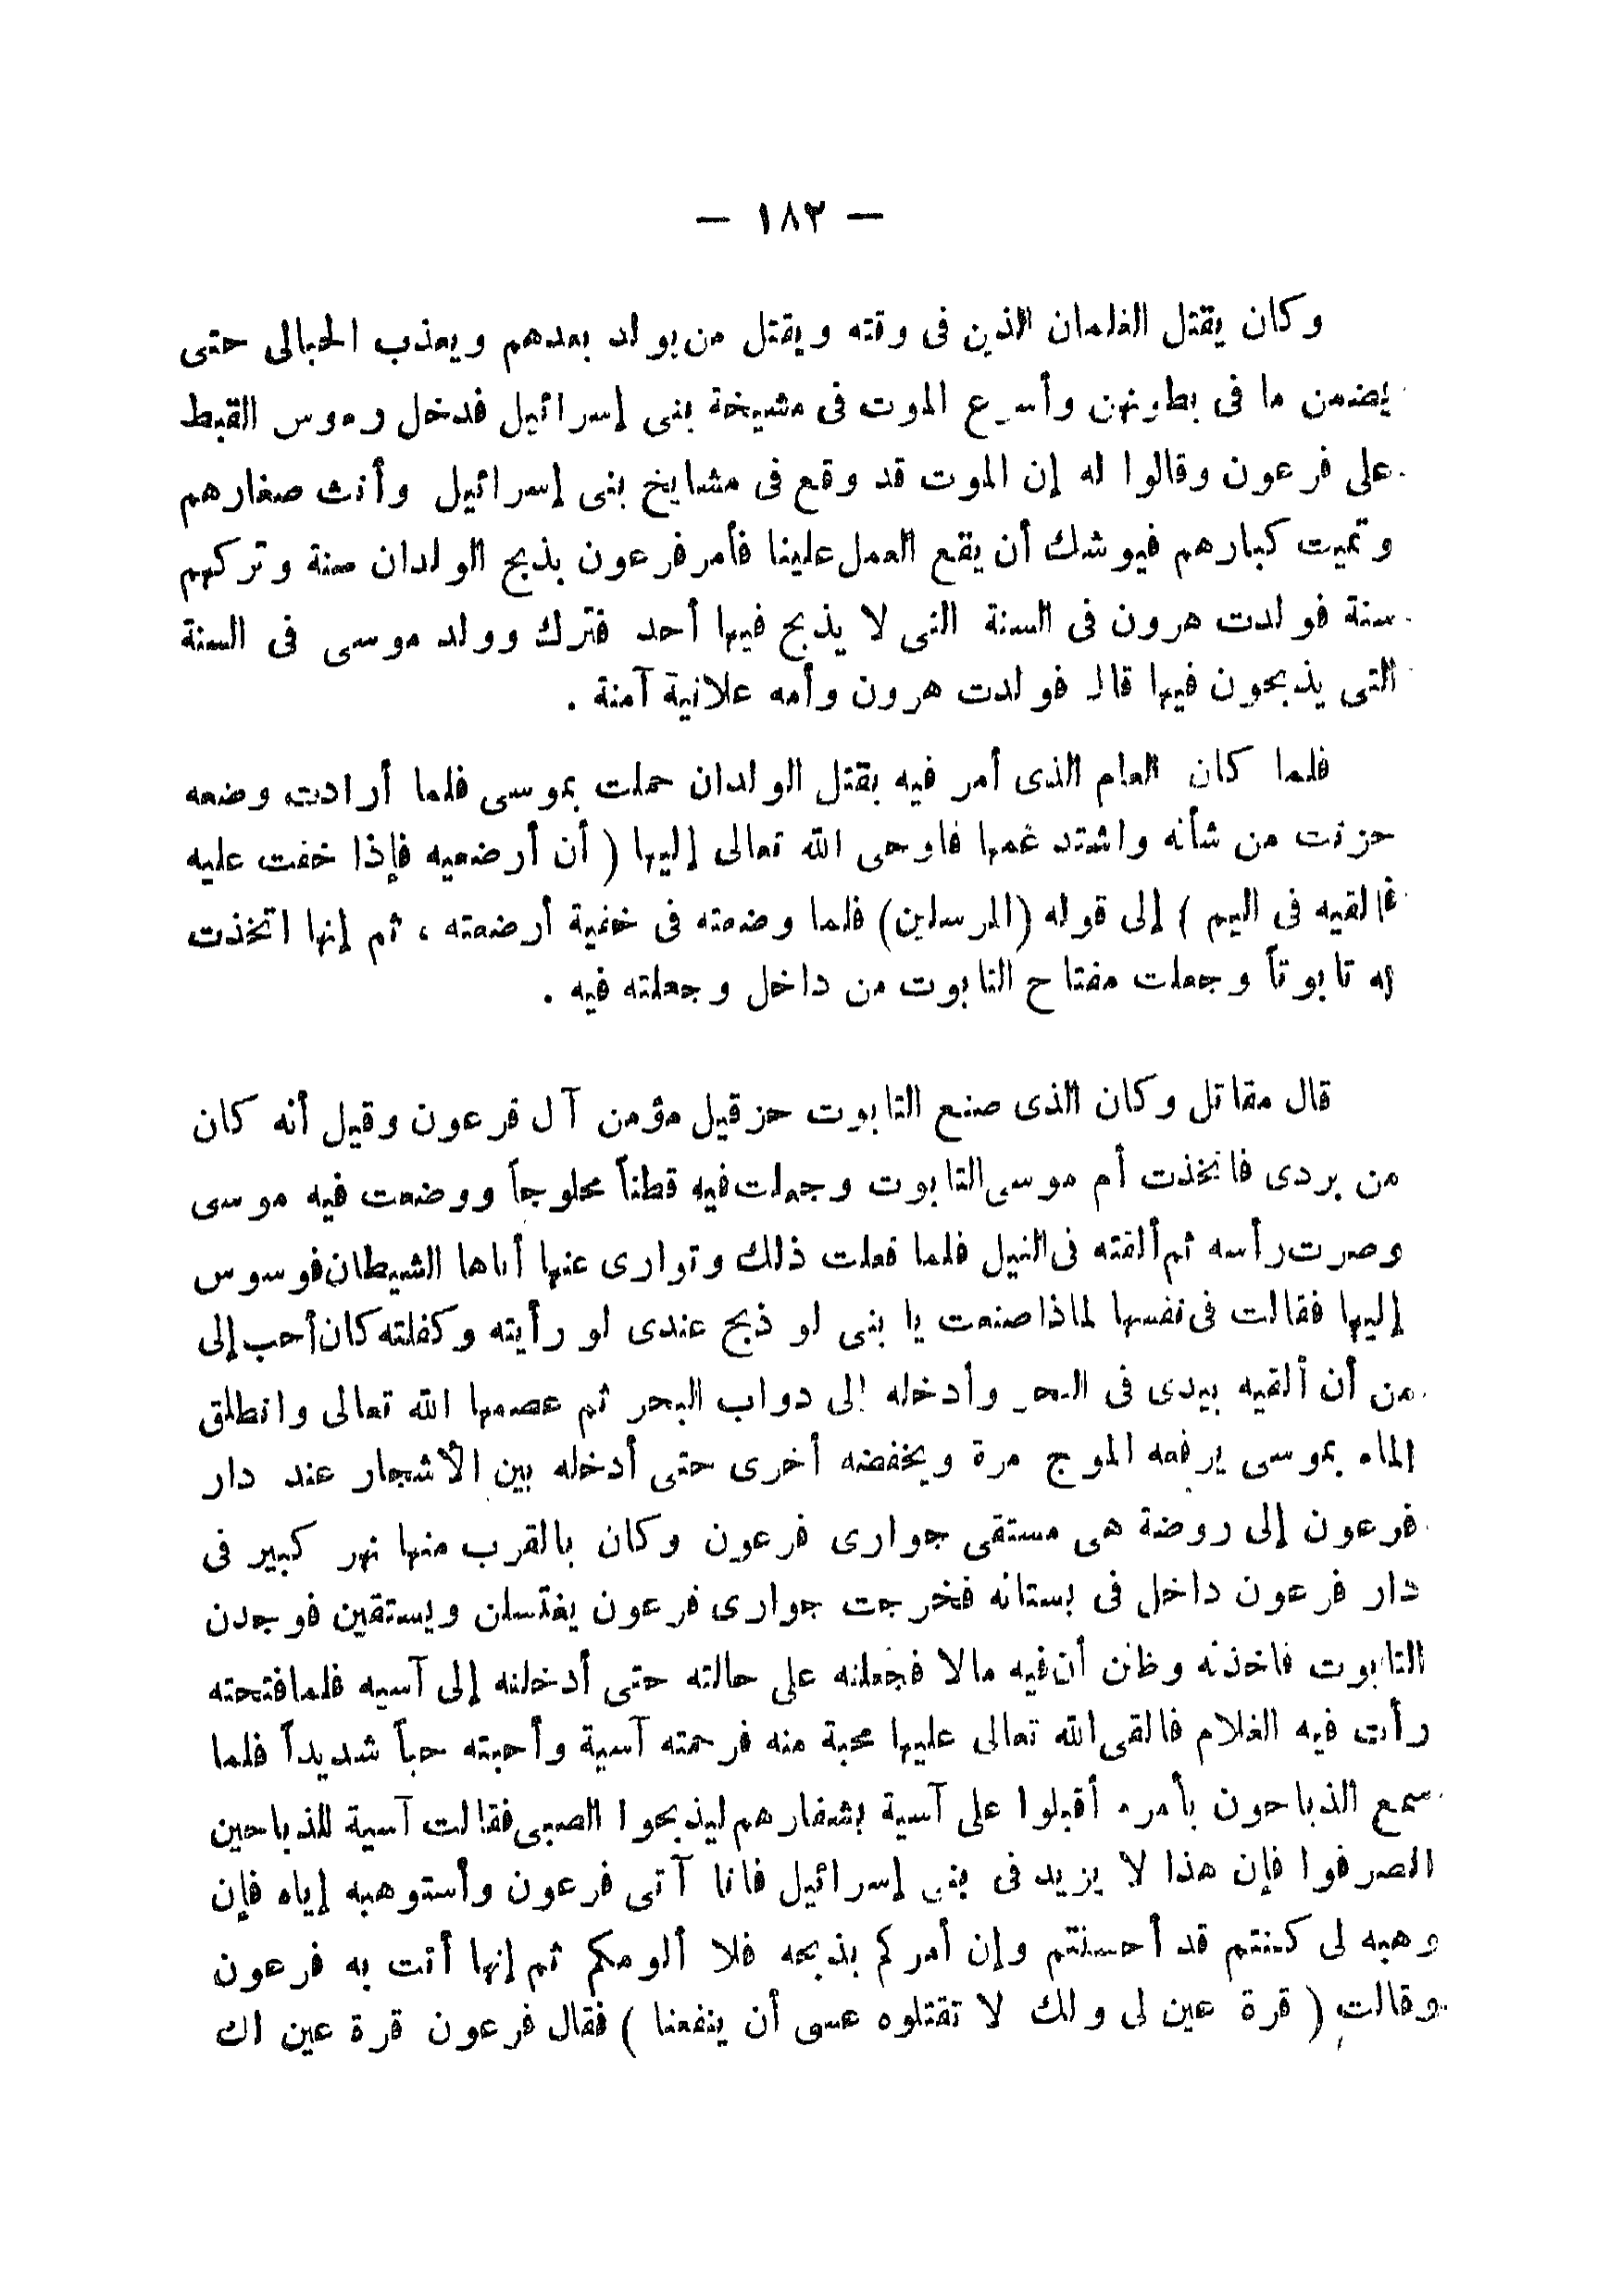 — ١٨٢ —
وكان يقتل الغلمان الذين فى وقته ويقتل من يولد بعدهم ويعذب الحبالى حتى
يضعن ما فى بطونهن وأسرع الموت فى مشيخة بنى إسرائيل فدخل رءوس القبط
على فرعون وقالوا له إن الموت قد وقع فى مشايخ بنى إسرائيل وأنت صغارهم
وتميت كبارهم فيوشك أن يقع العمل علينا فأمر فرعون بذبح الولدان سنة وتركهم
سنة فولدت هرون فى السنة التى لا يذبح فيها أحد فترك وولد موسى فى السنة
التى يذبحون فيها قال فولدت هرون وأمه علانية آمنة .
فلما كان العام الذى أمر فيه بقتل الولدان حملت بموسى فلما أرادت وضعه
حزنت من شأنه واشتد غمها فاوحى الله تعالى إليها ( أن أرضعيه فإذا خفت عليه
فالقيه فى اليم ) إلى قوله (المرسلين) فلما وضعته فى خفية أرضعته ، ثم إنها اتخذت
له تابوتاً وجعلت مفتاح التابوت من داخل وجعلته فيه .
قال مقاتل وكان الذى صنع التابوت حزقيل مؤمن آل فرعون وقيل أنه كان
من بردى فاتخذت أم موسى التابوت وجعلت فيه قطناً محلوجاً ووضعت فيه موسى
وصرت رأسه ثم ألقته فى النيل فلما فعلت ذلك وتوارى عنها أتاها الشيطان فوسوس
إليها فقالت فى نفسها لماذا صنعت يا بنى لو ذبح عندى لو رأيته وكفلته كان أحب إلى
من أن ألقيه بيدى فى البحر وأدخله إلى دواب البحر ثم عصمها الله تعالى وانطلق
الماء بموسى يرفعه الموج مرة ويخفضه أخرى حتى أدخله بين الأشجار عند دار
فرعون إلى روضة هى مستقى جوارى فرعون وكان بالقرب منها نهر كبير فى
دار فرعون داخل فى بستانه فخرجت جوارى فرعون يغتسلن ويستقين فوجدن
التابوت فاخذنه وظنن أن فيه مالا فجعلنه على حالته حتى أدخلنه إلى آسيه فلما فتحته
رأت فيه الغلام فالقى الله تعالى عليها محبة منه فرحمته آسية وأحبته حباً شديداً فلما
سمع الذباحون بأمره أقبلوا على آسية بشفارهم ليذبحوا الصبى فقالت آسية للذباحين
انصرفوا فإن هذا لا يزيد فى بنى إسرائيل فانا آتى فرعون وأستوهبه إياه فإن
وهبه لى كنتم قد أحسنتم وإن أمركم بذبحه فلا ألومكم ثم إنها أتت به فرعون
وقالت ( قرة عين لى ولك لا تقتلوه عسى أن ينفعنا ) فقال فرعون قرة عين لك